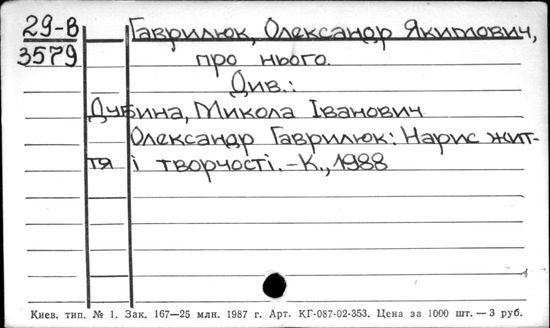 29-В
3579
Гаврилюк, Олександр Якимович,
про нього.
Див.:
Дубина, Микола Іванович
Олександр Гаврилюк: Нарис жит-
тя і творчості.-К., 1988
Киев. тип. № 1. Зак. 167—25 млн. 1987 г. Арт. КГ-087-02-353. Цена за 1000 шт.— 3 руб.